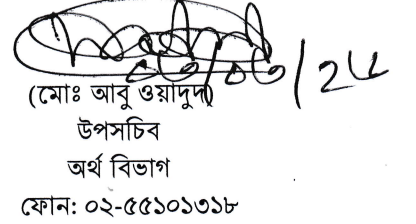 (মোঃ আবু ওয়াদুদ)
উপসচিব
অর্থ বিভাগ
ফোন: ০২-৫৫১০১৩১৮